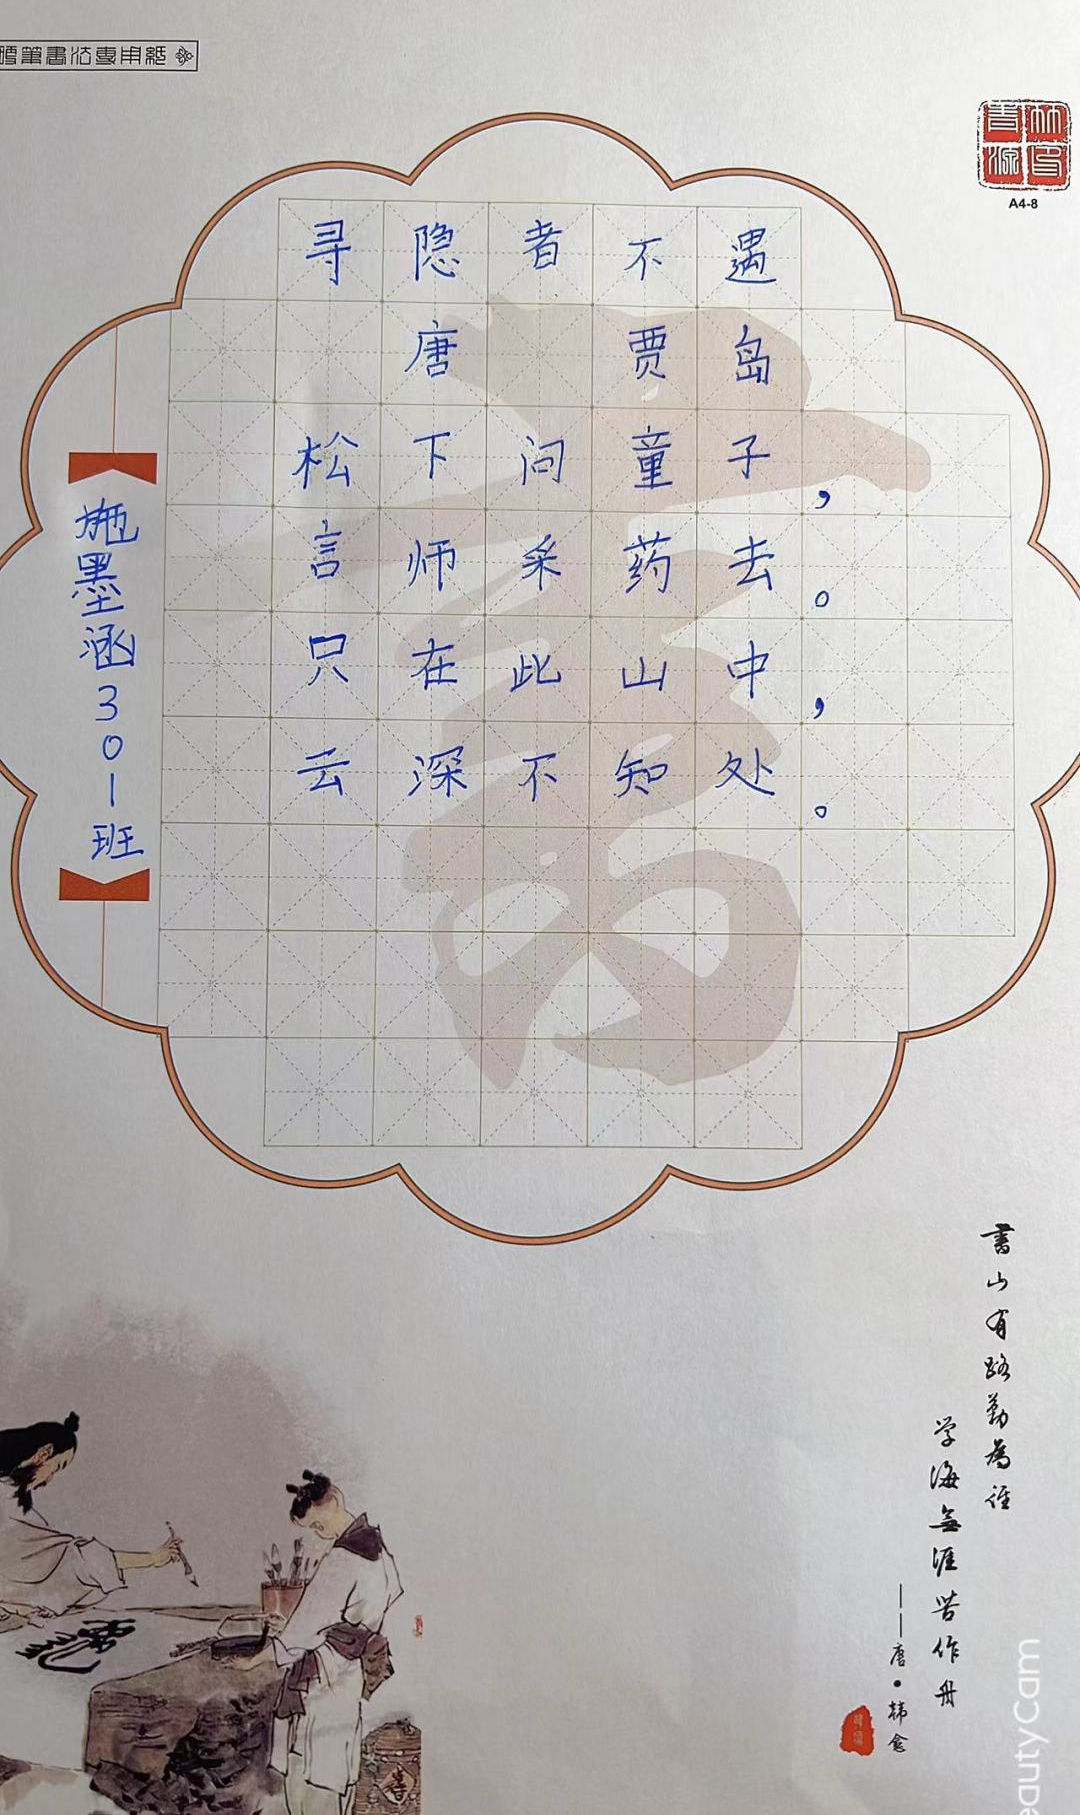 硬筆書法專用紙
A4-8
寻隐者不遇
唐 贾岛
松下问童子，
言师采药去。
只在此山中，
云深不知处。
施墨涵301班
書山有路勤為徑
学海無涯苦作舟
——唐·韩愈
eautyCam